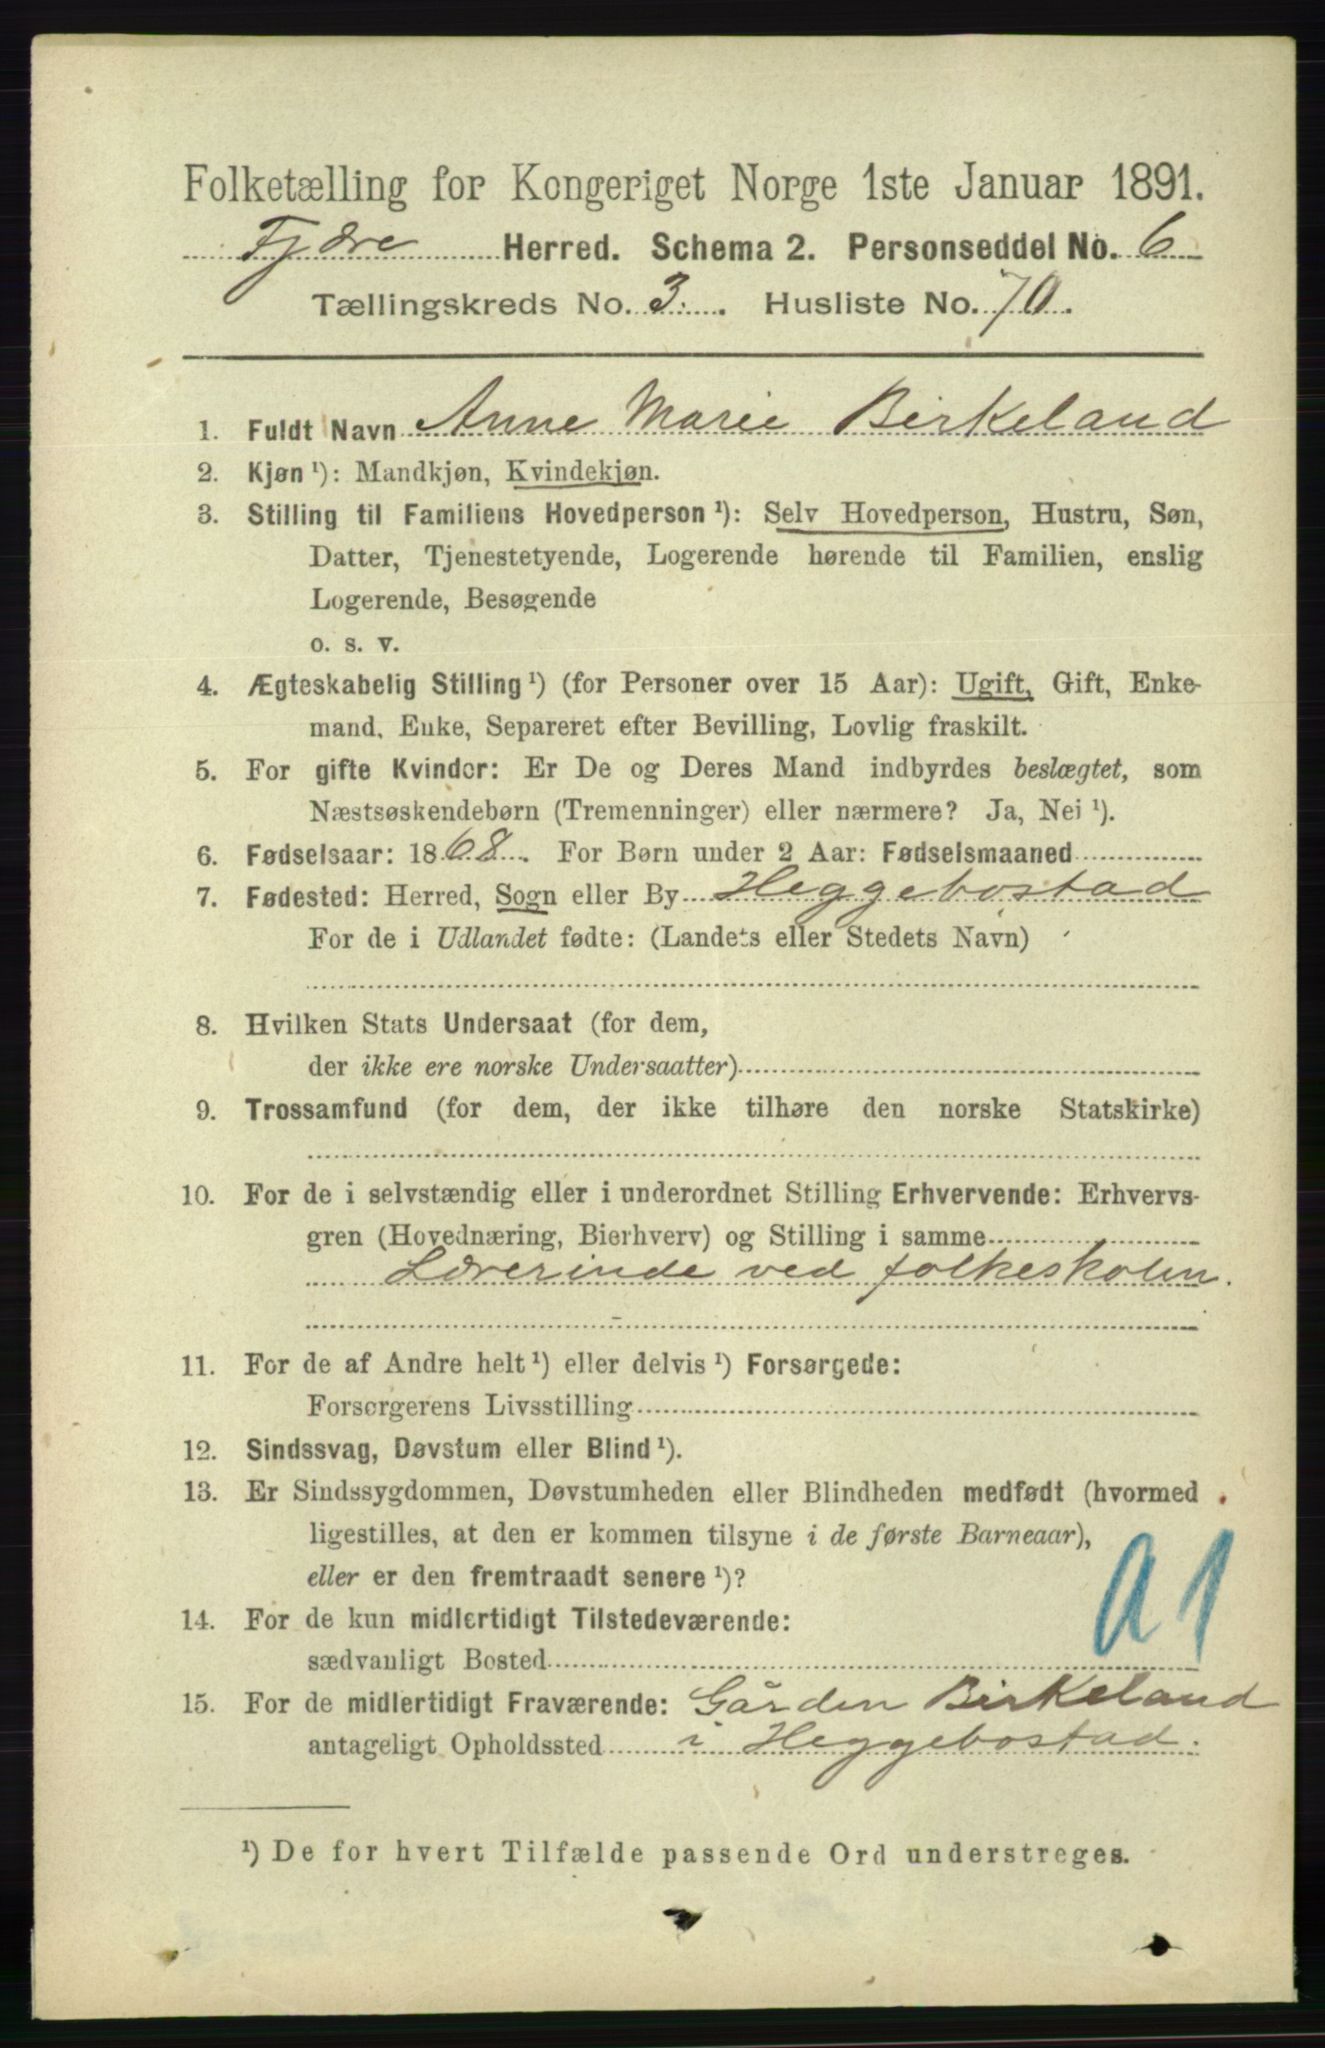 Folketælling for Kongeriget Norge 1ste Januar 1891.
Fjære Herred. Schema 2. Personseddel No. 6
Tællingskreds No. 3. Husliste No. 70.
1. Fuldt Navn Anne Marie Birkeland
2. Kjøn ¹): Mandkjøn, Kvindekjøn.
3. Stilling til Familiens Hovedperson ¹): Selv Hovedperson, Hustru, Søn,
Datter, Tjenestetyende, Logerende hørende til Familien, enslig
Logerende, Besøgende
o. s. v.
4. Ægteskabelig Stilling ¹) (for Personer over 15 Aar): Ugift, Gift, Enke-
mand, Enke, Separeret efter Bevilling, Lovlig fraskilt.
5. For gifte Kvinder: Er De og Deres Mand indbyrdes beslægtet, som
Næstsøskendebørn (Tremenninger) eller nærmere? Ja, Nei ¹).
6. Fødselsaar: 1868. For Børn under 2 Aar: Fødselsmaaned
7. Fødested: Herred, Sogn eller By Heggebostad
For de i Udlandet fødte: (Landets eller Stedets Navn)
8. Hvilken Stats Undersaat (for dem,
der ikke ere norske Undersaatter)
9. Trossamfund (for dem, der ikke tilhøre den norske Statskirke)
10. For de i selvstændig eller i underordnet Stilling Erhvervende: Erhvervs-
gren (Hovednæring, Bierhverv) og Stilling i samme
Lærerinde ved folkeskolen.
11. For de af Andre helt ¹) eller delvis ¹) Forsørgede:
Forsørgerens Livsstilling
12. Sindssvag, Døvstum eller Blind ¹).
13. Er Sindssygdommen, Døvstumheden eller Blindheden medfødt (hvormed
ligestilles, at den er kommen tilsyne i de første Barneaar),
eller er den fremtraadt senere ¹)?
A1
14. For de kun midlertidigt Tilstedeværende:
sædvanligt Bosted
15. For de midlertidigt Fraværende: Gården Birkeland
antageligt Opholdssted i Heggebostad.
¹) De for hvert Tilfælde passende Ord understreges.